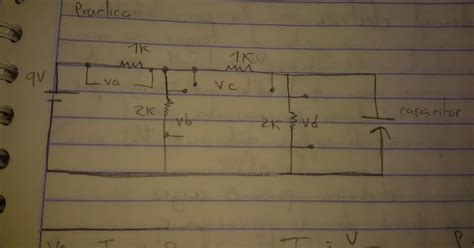 Practica
1K
1K
9V
va
vc
2K
vb
2K
vd
capacitor